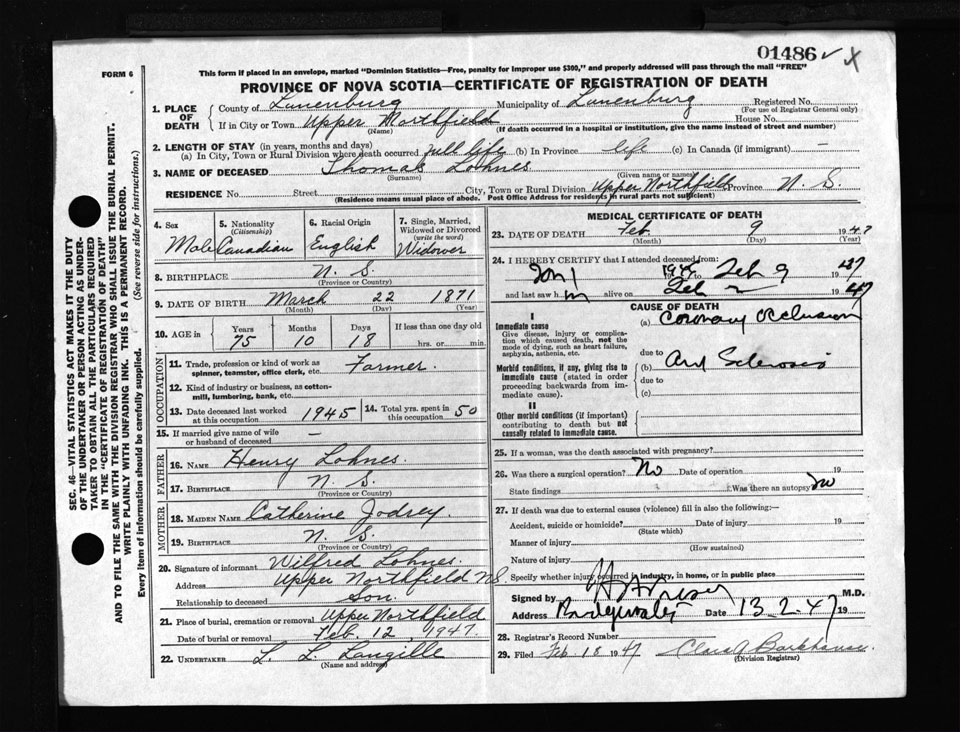 01486 ✓ X
FORM 6
This form if placed in an envelope, marked "Dominion Statistics—Free, penalty for improper use $300," and properly addressed will pass through the mail "FREE"
PROVINCE OF NOVA SCOTIA—CERTIFICATE OF REGISTRATION OF DEATH
1. PLACE OF DEATH County of Lunenburg Municipality of Lunenburg Registered No.
(For use of Registrar General only)
If in City or Town Upper Northfield House No.
(Name) (If death occurred in a hospital or institution, give the name instead of street and number)
2. LENGTH OF STAY (in years, months and days)
(a) In City, Town or Rural Division where death occurred full life (b) In Province life (c) In Canada (if immigrant) —
3. NAME OF DECEASED Thomas Lohnes
(Surname) (Given name or names)
RESIDENCE No. Street City, Town or Rural Division Upper Northfield Province N. S.
(Residence means usual place of abode. Post Office Address for residents in rural parts not sufficient)
4. Sex Male
5. Nationality (Citizenship) Canadian
6. Racial Origin English
7. Single, Married, Widowed or Divorced (write the word) Widower
8. BIRTHPLACE N. S.
(Province or Country)
9. DATE OF BIRTH March 22 1871
(Month) (Day) (Year)
10. AGE in Years 75 Months 10 Days 18 If less than one day old hrs. or min.
OCCUPATION
11. Trade, profession or kind of work as spinner, teamster, office clerk, etc. Farmer.
12. Kind of industry or business, as cotton-mill, lumbering, bank, etc.
13. Date deceased last worked at this occupation 1945
14. Total yrs. spent in this occupation 50
15. If married give name of wife or husband of deceased —
FATHER
16. NAME Henry Lohnes.
17. BIRTHPLACE N. S.
(Province or Country)
MOTHER
18. MAIDEN NAME Catherine Jodrey.
19. BIRTHPLACE N. S.
(Province or Country)
20. Signature of informant Wilfred Lohnes.
Address Upper Northfield N.S.
Relationship to deceased Son.
21. Place of burial, cremation or removal Upper Northfield
Date of burial or removal Feb. 12, 1947.
22. UNDERTAKER L. L. Langille
(Name and address)
MEDICAL CERTIFICATE OF DEATH
23. DATE OF DEATH Feb. 9 1947
(Month) (Day) (Year)
24. I HEREBY CERTIFY that I attended deceased from:
Jan 1 1947 to Feb 9 1947
and last saw h m alive on Feb 1947
CAUSE OF DEATH
I
Immediate cause
Give disease, injury or complication which caused death, not the mode of dying, such as heart failure, asphyxia, asthenia, etc.
(a) Coronary Occlusion
due to
Morbid conditions, if any, giving rise to immediate cause (stated in order proceeding backwards from immediate cause).
(b) Art Sclerosis
due to
(c)
II
Other morbid conditions (if important) contributing to death but not causally related to immediate cause.
25. If a woman, was the death associated with pregnancy?
26. Was there a surgical operation? No Date of operation 19
State findings Was there an autopsy No
27. If death was due to external causes (violence) fill in also the following:—
Accident, suicide or homicide? Date of injury 19
(State which)
Manner of injury
(How sustained)
Nature of injury
Specify whether injury occurred in industry, in home, or in public place
Signed by M.D.
Address Bridgewater Date 13-2-47 19
28. Registrar's Record Number
29. Filed Feb. 18 1947 Clara Barkhouse.
(Division Registrar)
SEC. 46—VITAL STATISTICS ACT MAKES IT THE DUTY
OF THE UNDERTAKER OR PERSON ACTING AS UNDERTAKER TO OBTAIN ALL THE PARTICULARS REQUIRED
IN THE "CERTIFICATE OF REGISTRATION OF DEATH"
AND TO FILE THE SAME WITH THE DIVISION REGISTRAR WHO SHALL ISSUE THE BURIAL PERMIT.
WRITE PLAINLY WITH UNFADING INK. THIS IS A PERMANENT RECORD.
Every item of information should be carefully supplied. (See reverse side for instructions.)